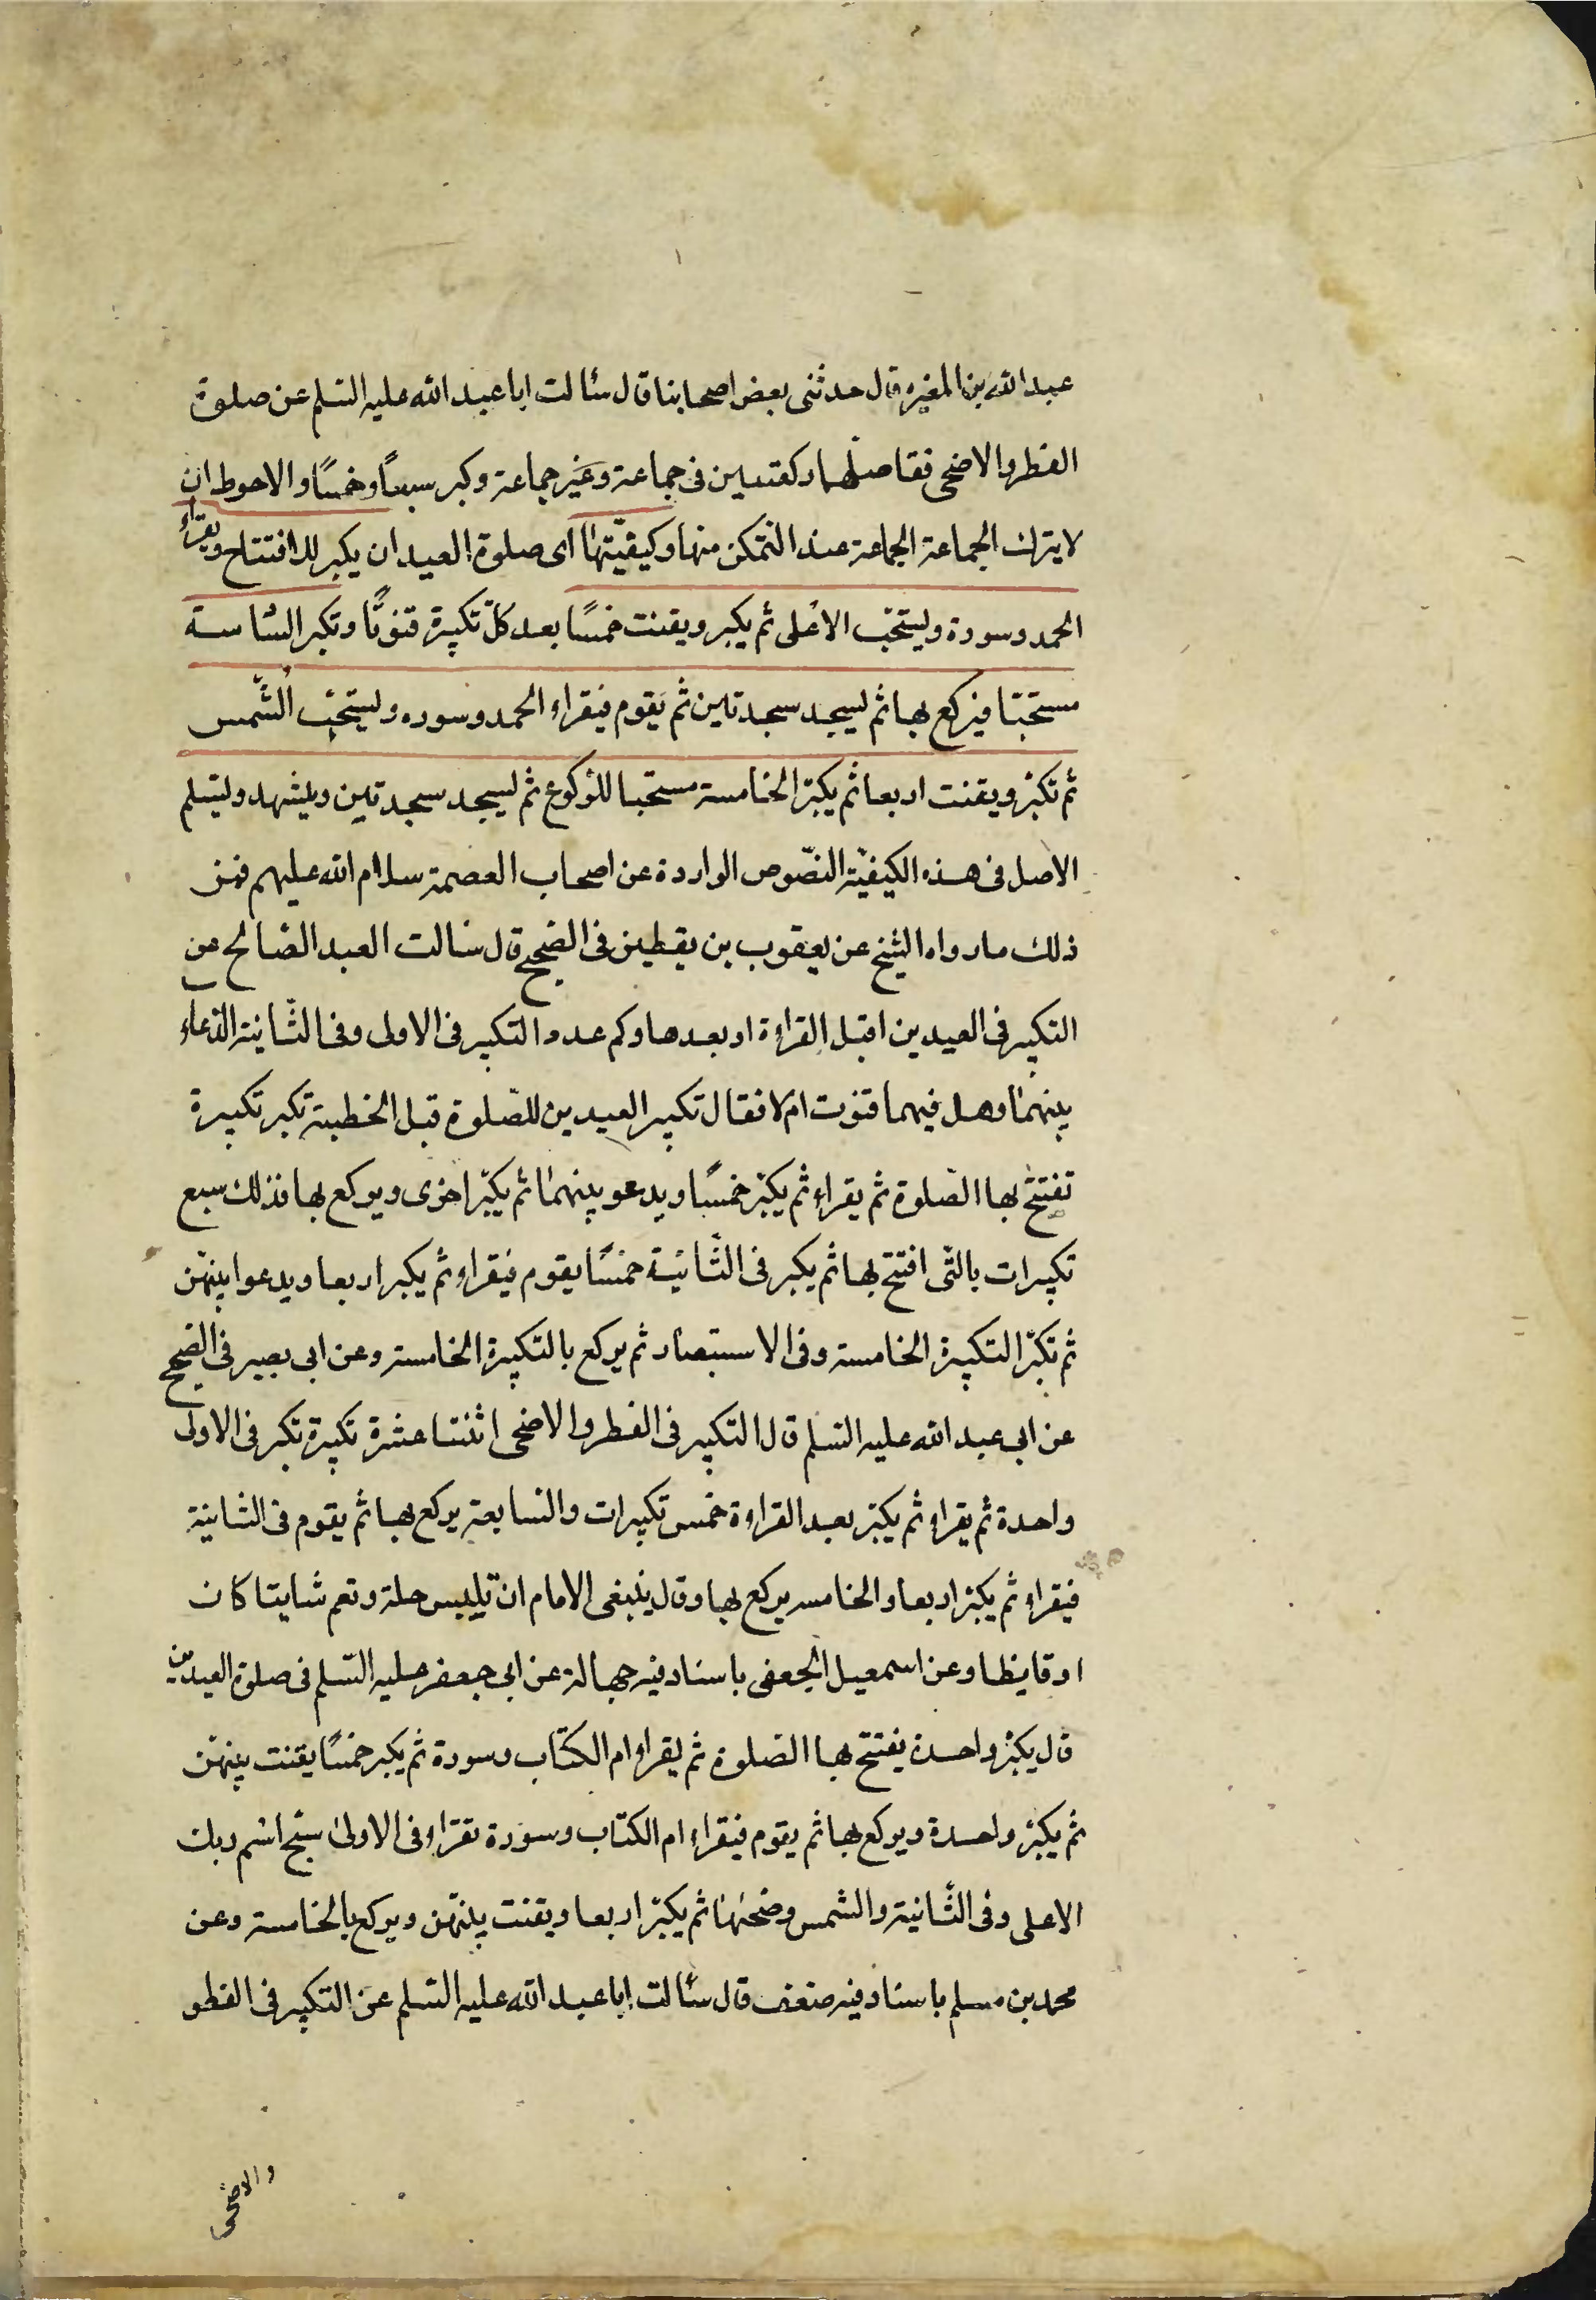 عبد الله بن المغيره قال حدثنى بعض اصحابنا قال سئالت ابا عبد الله عليه السلم عن صلوة
الفطر والاضحى فقا صلهما ركعتين فى جماعة وغير جماعة وكبر سبعاً وخمسًا والاحوط ان
لا يترك الجماعة الجماعة عند التمكن منها وكيفيّتها اى صلوة العيد ان يكبر للافتتاح ويقراء
الحمد وسورة وليتحبّ الاعلى ثم يكبر ويقنت خمسًا بعد كلّ تكبيرة قنوتًا وتكبر السّاسة
مستحبّا فيركع بها ثم ليسجد سجدتين ثم يقوم فيقراء الحمد وسوره وليتحبّ الشّمس
ثم تكبّر ويقنت اربعا ثم يكبّر الخامسة مستحبا للركوع ثم ليسجد سجدتين ويتشهد وليسلم
الاصل فى هذه الكيفيّة النصّوص الواردة عن اصحاب العصمة سلام الله عليهم فمن
ذلك ما رواه الشيخ عن يعقوب بن يقطين فى الصحيح قال سالت العبد الصالح عن
التكبير فى العيدين اقبل القراءة او بعدها وكم عدد التكبير فى الاولى وفى الثّانية الدعاء
بينهما وهل فيهما قنوت ام لا فقال تكبير العيدين للصّلوة قبل الخطبة تكبر تكبيرة
تفتتح بها الصّلوة ثم يقراء ثم يكبّر خمسًا ويدعو بينهما ثم يكبّر اخرى ويركع بها فذلك سبع
تكبيرات بالتّى افتتح بها ثم يكبر فى الثّانيّة خمسًا يقوم فيقراء ثم يكبر اربعا ويدعوا بينهّن
ثم تكبّر التكبيرة الخامسة وفى الاستبصار ثم يركع بالتكبيرة الخامسة وعن ابى بصير فى الصحيح
عن ابى عبد الله عليه السلم قال التكبير فى الفطر والاضحى اثنتا عشرة تكبيرة تكبر فى الاولى
واحدة ثم يقراء ثم يكبّر بعد القراءة خمس تكبيرات والسابعة يركع بها ثم يقوم فى الثانية
فيقراء ثم يكبّر اربعا والخامسه يركع بها وقال ينبغى الامام ان تلبس حلة وتعم شايتا كان
او قايظا وعن اسمعيل الجعفى باسناد فيه جهالة عن ابى جعفر عليه السّلم فى صلوة العيدين
قال يكبّر واحدة يفتتح بها الصّلوة ثم يقراء ام الكتاب وسورة ثم يكبر خمسًا يقنت بينهّن
ثم يكبّر واحدة ويركع بها ثم يقوم فيقراء ام الكتاب وسورة تقرّاء فى الاولى سبّح اسم ربك
الاعلى وفى الثّانية والشمس وضحها ثم يكبّر اربعا ويقنت بينهّن ويركع بالخامسة وعن
محمد بن مسلم باسناد فيه ضعف قال سئالت ابا عبد الله عليه السّلم عن التكبير فى الفطر
والاضحى